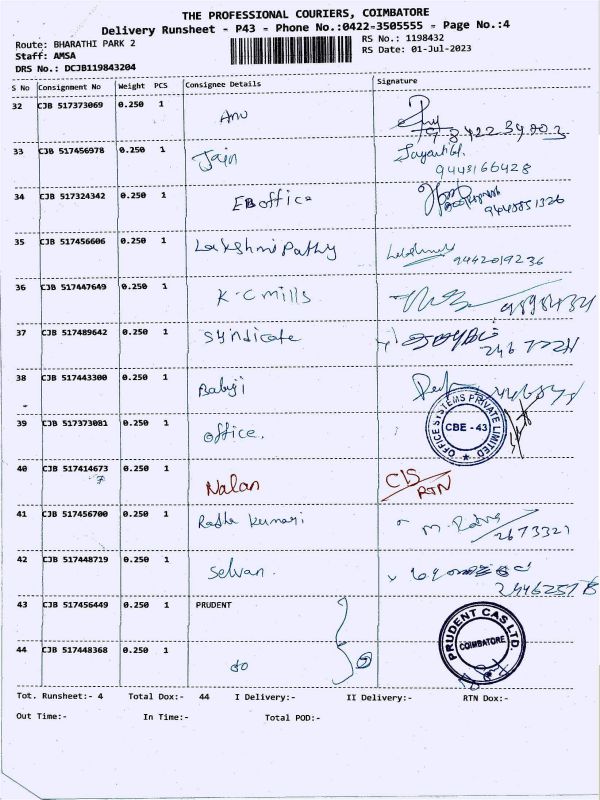 THE PROFESSIONAL COURIERS, COIMBATORE
Delivery Runsheet - P43 - Phone No.:0422-3505555 - Page No.:4
Route: BHARATHI PARK 2
RS No.: 1198432
Staff: AMSA
RS Date: 01-Jul-2023
DRS No.: DCJB119843204
S No Consignment No Weight PCS Consignee Details Signature
32 CJB 517373069 0.250 1 Anu
33 CJB 517456978 0.250 1 Jain Jayanthi
9443166428
34 CJB 517324342 0.250 1 EB office
35 CJB 517456606 0.250 1 Lakshmi Pathy 9442019236
36 CJB 517447649 0.250 1 K-C mills
37 CJB 517489642 0.250 1 Syndicate
38 CJB 517443300 0.250 1 Babyji
39 CJB 517373081 0.250 1 office.
OFFICE SYSTEMS PRIVATE LIMITED
CBE - 43
40 CJB 517414673 0.250 1 Nalan C/S
RTN
41 CJB 517456700 0.250 1 Radha Kumari
2673321
42 CJB 517448719 0.250 1 Selvan.
43 CJB 517456449 0.250 1 PRUDENT
44 CJB 517448368 0.250 1 do ②
PRUDENT CAS LTD.
COIMBATORE
Tot. Runsheet:- 4 Total Dox:- 44 I Delivery:- II Delivery:- RTN Dox:-
Out Time:- In Time:- Total POD:-